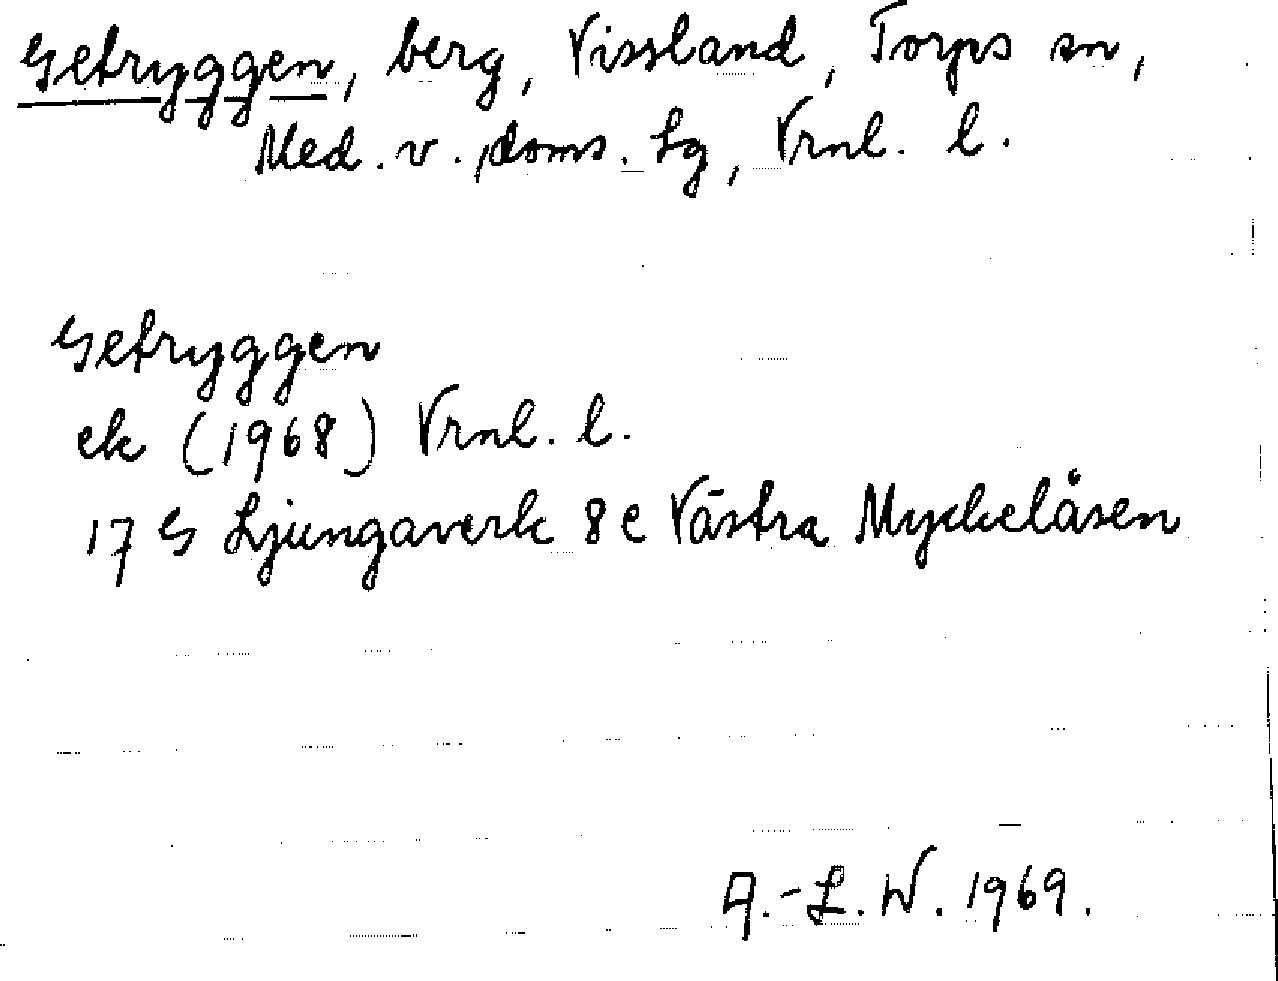 Getryggen, berg, Vissland, Torps sn,
Med. v. doms. lg, Vrnl. l.
Getryggen
ek (1968) Vrnl. l.
17 G Ljungaverk 8 e Västra Myckelåsen
A.-L. W. 1969.